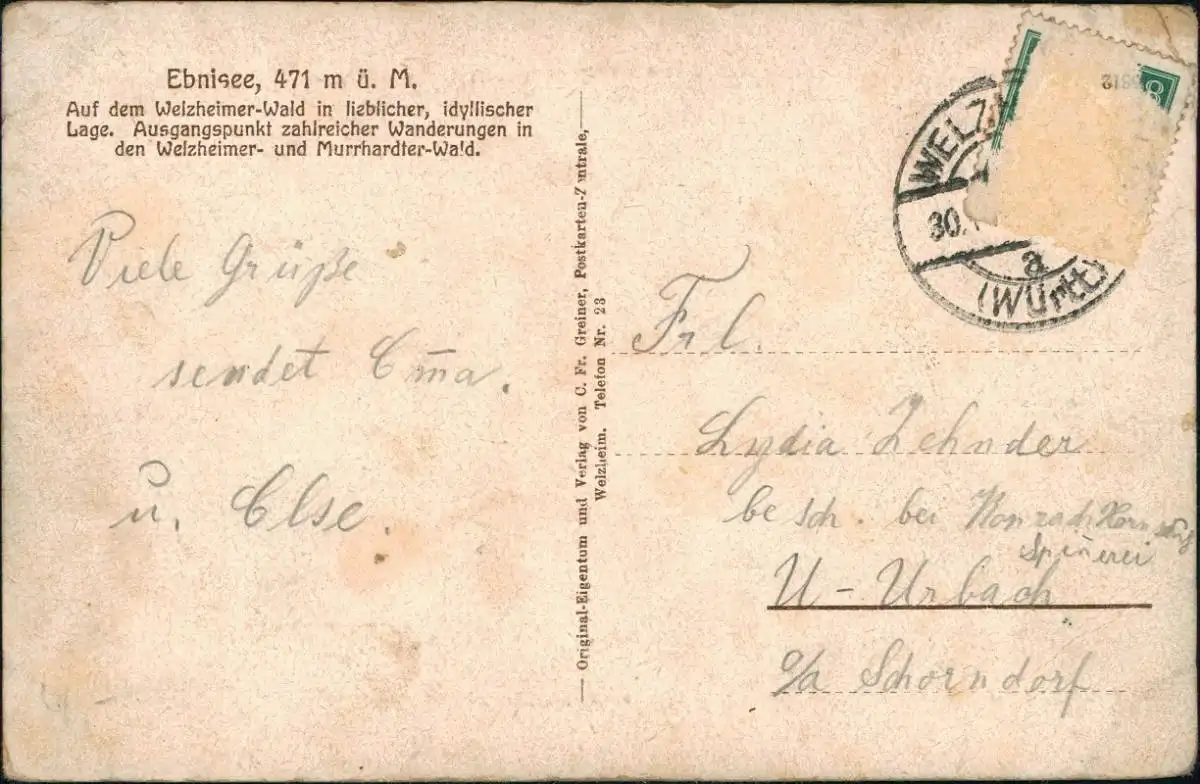 Ebnisee, 471 m ü. M.
Auf dem Welzheimer-Wald in lieblicher, idyllischer
Lage. Ausgangspunkt zahlreicher Wanderungen in
den Welzheimer- und Murrhardter-Wald.
Viele Grüße
sendet Em̅a.
u. Else.
Original-Eigentum und Verlag von C. Fr. Greiner, Postkarten-Zentrale,
Welzheim. Telefon Nr. 23
WELZ
30.
a
(Württ)
Frl.
Lydia Zehnder
besch. bei Konrad
Spin̅erei
U-Urbach
o/a Schorndorf